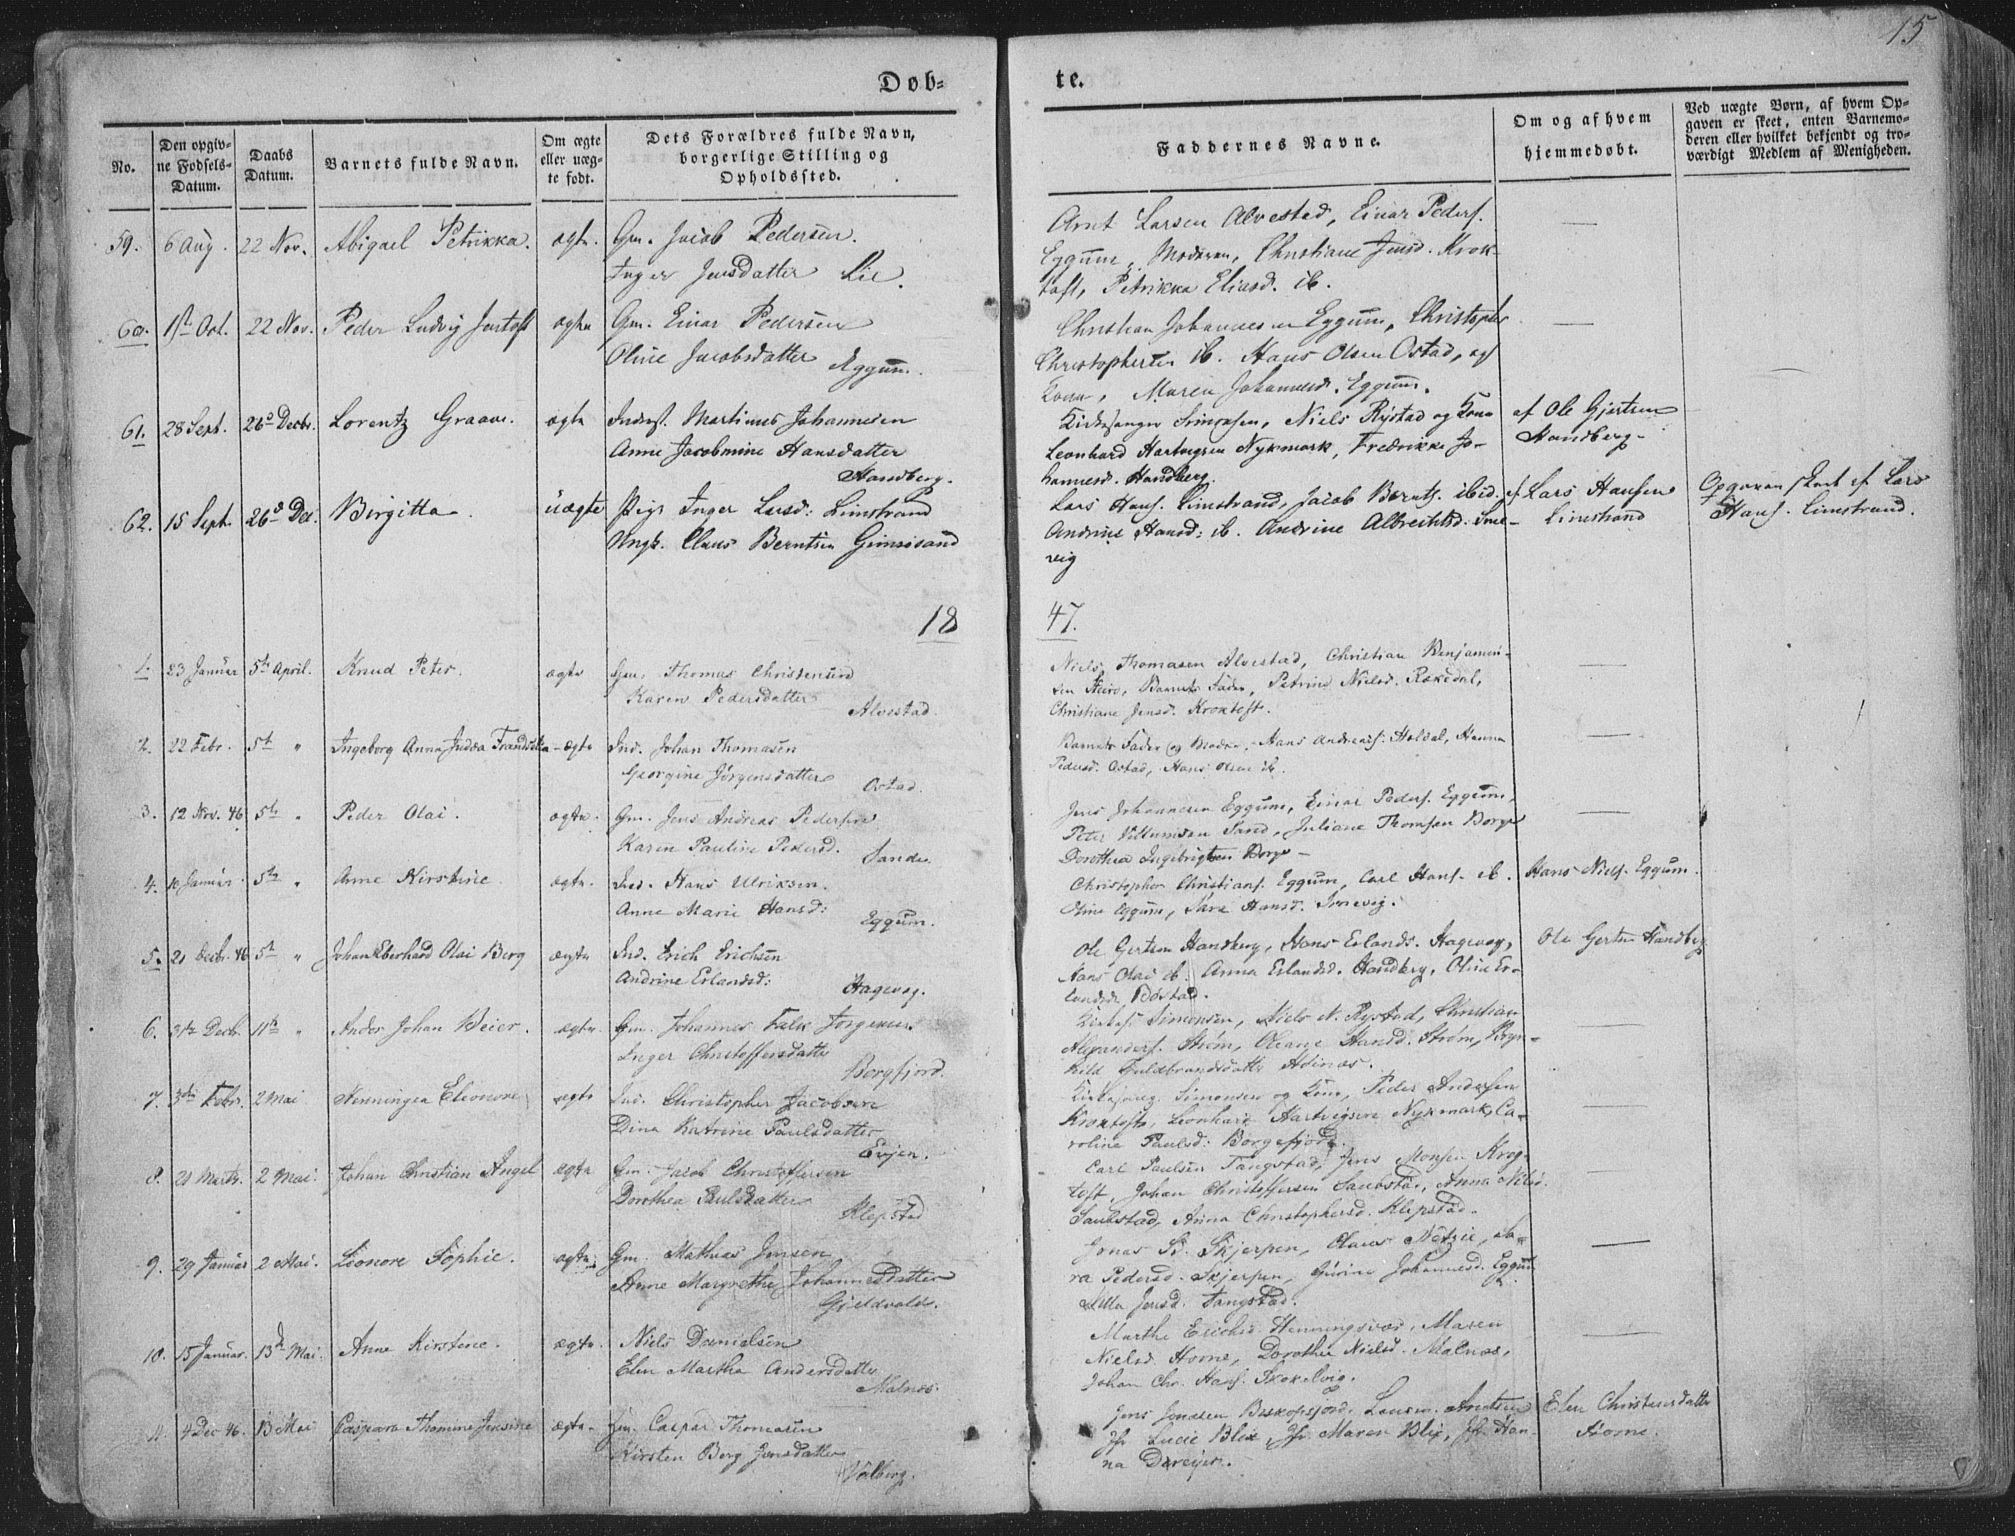 15
Døb-
te.
No.
Den opgiv-
ne Fødsels-
Datum.
Daabs
Datum.
Barnets fulde Navn.
Om ægte
eller uæg-
te født.
Dets Forældres fulde Navn,
borgerlige Stilling og
Opholdssted.
Faddernes Navne.
Om og af hvem
hjemmedøbt.
Ved uægte Børn, af hvem Op-
gaven er skeet, enten Barnemo-
deren eller hvilket bekjendt og tro-
værdigt Medlem af Menigheden.
59. 6 Aug. 22 Nov. Abigael Petrikka. ægte. Gm. Jacob Pedersen.
Inger Jensdatter Lie.
Arnt Larsen Alvestad, Einar Peders.
Eggum, Moderen, Christiane Jensd. Krok-
toft, Petrikka Eliasd. ib.
60. 1ste Oct. 22 Nov. Peder Ludvig Jentoft ægte Gm. Einar Pedersen
Oline Jacobsdatter Eggum.
Christian Johannesen Eggum, Christopher
Christophersen ib. Hans Olsen Ostad, og
Kona, Maren Johannesd. Eggum.
61. 28 Sept. 26de Decbr. Lorentz Graave. ægte Inderst. Martinus Johannesen
Anne Jacobmine Hansdatter
Handberg.
Kirkesanger Simonsen, Niels Rystad og Kone
Leonhard Hartvigsen Nykmark, Fredrikke Jo-
hannesd. Handberg.
af Ole Gjertsen
Handberg.
62. 15 Sept. 26de Dec. Birgitta. uægte Pige Inger Larsd: Limstrand
Ungk. Claus Berntsen Gimsøsand
Lars Hans. Limstrand, Jacob Bernts. ibid.
Andrine Hansd: ib. Andrine Albrechtsd. Sme-
vig
af Lars Hansen
Limstrand
Opgaven skeet af Lars
Hans. Limstrand.
18
47.
1. 23 Januar 5te April. Knud Peter. ægte Gm. Thomas Christensen
Karen Pedersdatter
Alvestad.
Niels Thomasen Alvestad, Christian Benjamin-
sen, Barnets Fader, Petrine Nielsd.
Christiane Jensd. Kroktoft.
2. 22 Febr. 5te " Ingeborg Anna Judea Frandsiska ægte Ind. Johan Thomasen
Georgine Jørgensdatter
Ostad.
Barnets Fader og Moder, Hans Andreas. Holdal, Hanna
Pedersd. Ostad, Hans Olsen ib.
3. 12 Nov. 46 5te " Peder Olai. ægte. Gm. Jens Andreas Pedersen
Karen Pauline Pedersd.
Sande
Jens Johannesen Eggum, Einar Peders. Eggum,
Peter Villumsen Sand, Juliane Thomsen Borge
Dorothea Ingebrigtsen Borge
4. 10 Januar 5te " Anne Kirstine ægte. Ind. Hans Ulriksen.
Anne Marie Hansd:
Eggum.
Christopher Christians. Eggum, Carl Hans. ib.
Oline Eggum, Sara Hansd. Smevig.
Hans Niels. Eggum.
5. 21 Decbr. 46 5te " Johan Eberhard Olai Berg ægte Ind. Erich Erichsen
Andrine Erlandsd:
Hagevog.
Ole Gertsen Handberg, Hans Erlands. Hagevog,
Hans Olai ib. Anna Erlandsd. Handberg, Oline Er-
landsd. Bøstad.
Ole Gertsen Handberg
6. 31te Decbr. 11te " Ander Johan Beier. ægte. Gm. Johannes Falk Jørgensen
Inger Christoffersdatter
Borgfjord.
Kirkes. Simonsen, Niels N. Rystad, Christian
Alexanders. Strøm, Oleane Hansd. Strøm, Ragn-
hild Guldbrandsdatter
7. 3die Febr. 2 Mai Henningea Eleonore ægte Ind. Christopher Jacobsen
Dina Katrine Paulsdatter
Evjen.
Kirkesang. Simonsen og Kone, Peder Andersen
Kroktoft, Leonhard Hartvigsen Nykmark, Ca-
roline Paulsd: Borgefjord.
8. 21 Marts. 2 Mai. Johan Christian Angel ægte Gm. Jacob Christoffersen
Dorothea Paulsdatter
Klepstad
Carl Paulsen Tangstad, Jens Monsen Krog-
toft, Johan Christoffersen Saubstad, Anna Nilsd.
Saubstad, Anna Christophersd. Klepstad.
9. 29 Januar 2 Mai. Leonore Sophie. ægte. Gm. Mathias Jensen
Anne Margrethe Johannesdatter
Gjeldvold.
Jonas B. Skjerpen, Claus, Sa-
ra Pedersd. Skjerpen, Gurine Johannesd. Eggum
Jensd. Tangstad.
10. 15 Januar. 13de Mai. Anne Kirstine. ægte. Niels Danielsen
Elen Martha Andersdatter
Malnæs.
Marthe Erichsd. Henningsvær, Maren
Nielsd. Horne, Dorothea Nielsd. Malnæs,
Johan Chr. Hans.
11. 4 Dec 46. 13 Mai Caspara Thomine Jensine ægte. Gm. Caspar Thomasen
Kirsten Berg Jonsdatter
Valberg.
Jens Jonasen Biskopsjord,
Jfr. Lucie Blix, Jfr Maren Blix, Jfr. Han-
na Dreyer.
Elen Christensdatter
Horne.